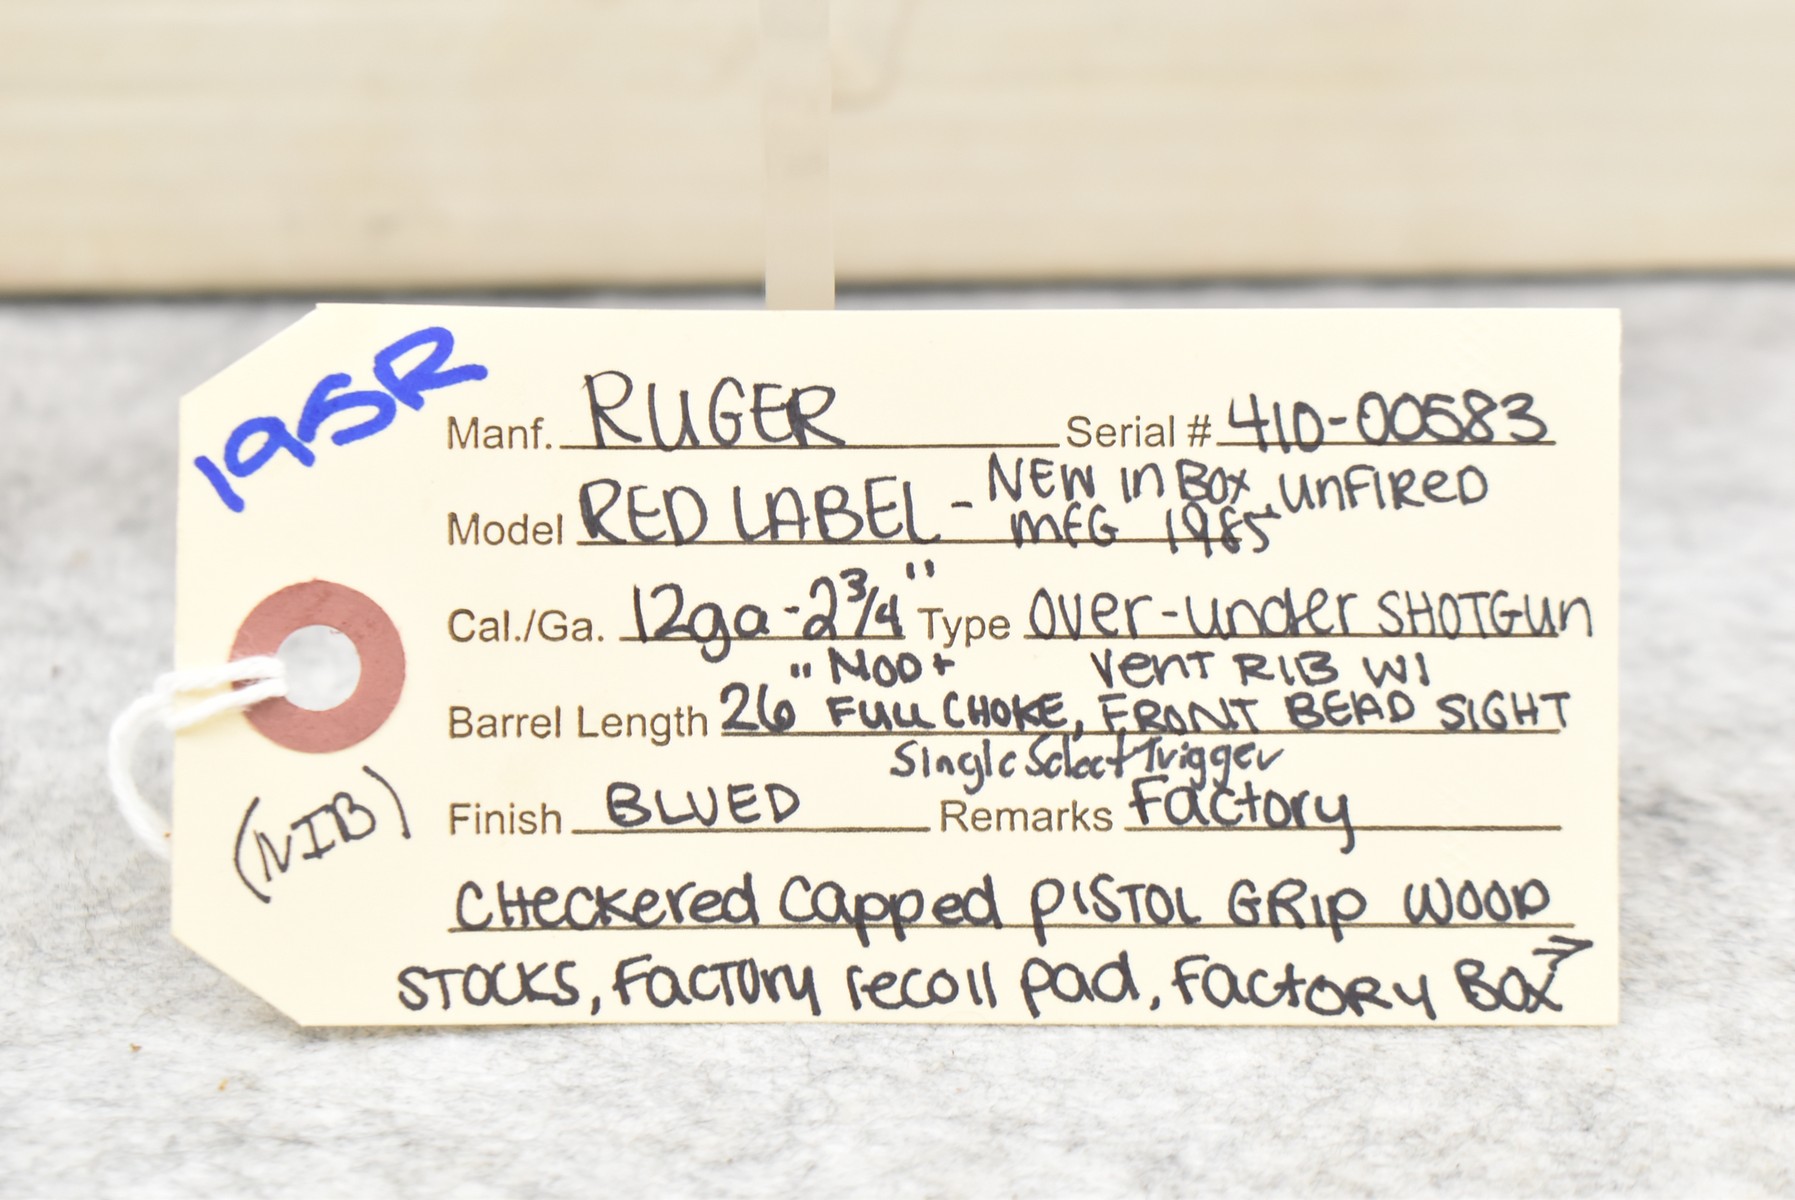 195R
Manf. RUGER Serial # 410-00583
Model RED LABEL - NEW in BOX, UNFIRED
MFG 1985
Cal./Ga. 12ga - 2 3/4" Type OVER-UNDER SHOTGUN
Barrel Length 26" MOD + FULL CHOKE, VENT RIB W/ FRONT BEAD SIGHT
Single Select Trigger
Finish BLUED Remarks Factory
(NIB)
CHeckered Capped PISTOL GRip WOOD
STOCKS, Factory recoil pad, Factory BOX →